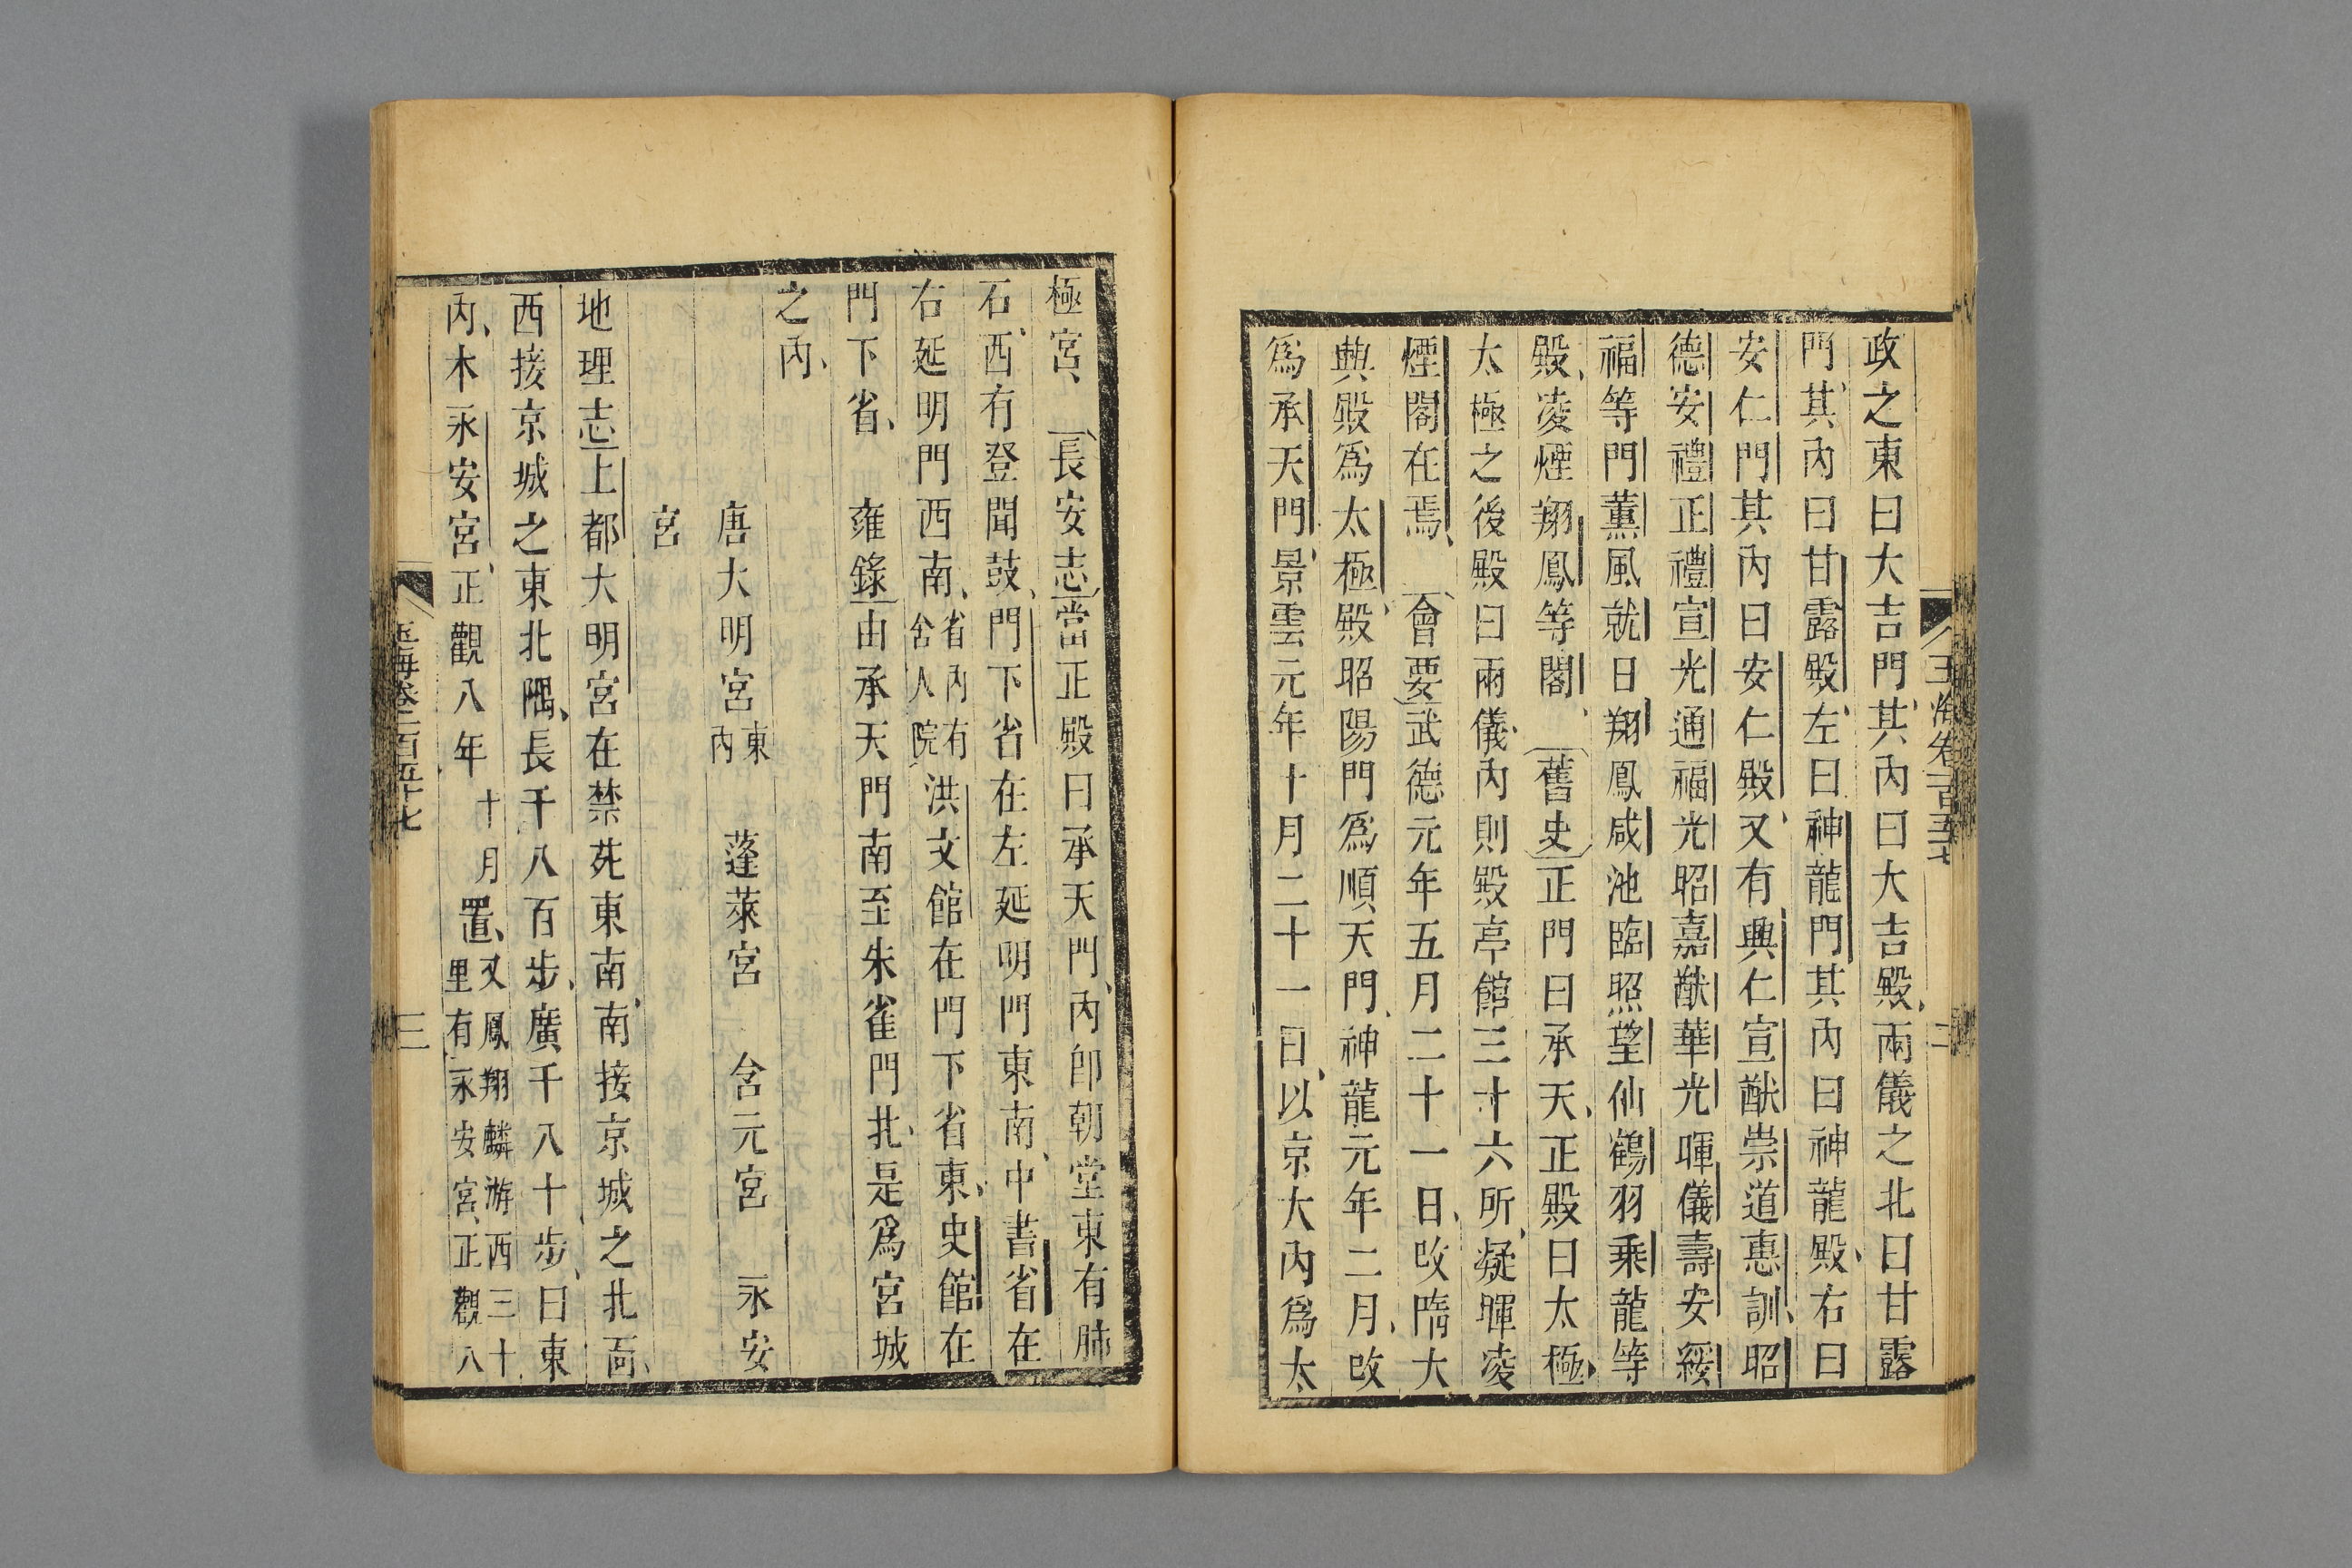 玉海卷一百五十七
二
政之東曰大吉門其內曰大吉殿兩儀之北曰甘露
門其內曰甘露殿左曰神龍門其內曰神龍殿右曰
安仁門其內曰安仁殿又有興仁宣猷崇道惠訓昭
德安禮正禮宣光通福光昭嘉猷華光暉儀壽安綏
福等門薰風就日翔鳳咸池臨照望仙鶴羽乘龍等
殿凌煙翔鳳等閣 舊史正門曰承天正殿曰太極
太極之後殿曰兩儀內則殿亭館三十六所凝暉凌
煙閣在焉 會要武德元年五月二十一日改隋大
興殿爲太極殿昭陽門爲順天門神龍元年二月改
爲承天門景雲元年十月二十一日以京大內爲太
極宮 長安志當正殿曰承天門內卽朝堂東有肺
石西有登聞鼓門下省在左延明門東南中書省在
右延明門西南省內有舍人院洪文館在門下省東史館在
門下省 雍錄由承天門南至朱雀門北是爲宮城
之內
唐大明宮東內 蓬萊宮 含元宮 永安
宮
地理志上都大明宮在禁苑東南南接京城之北面
西接京城之東北隅長千八百步廣千八十步曰東
內本永安宮正觀八年十月置又鳳翔麟游西三十里有永安宮正觀八
玉海卷一百五十七
三